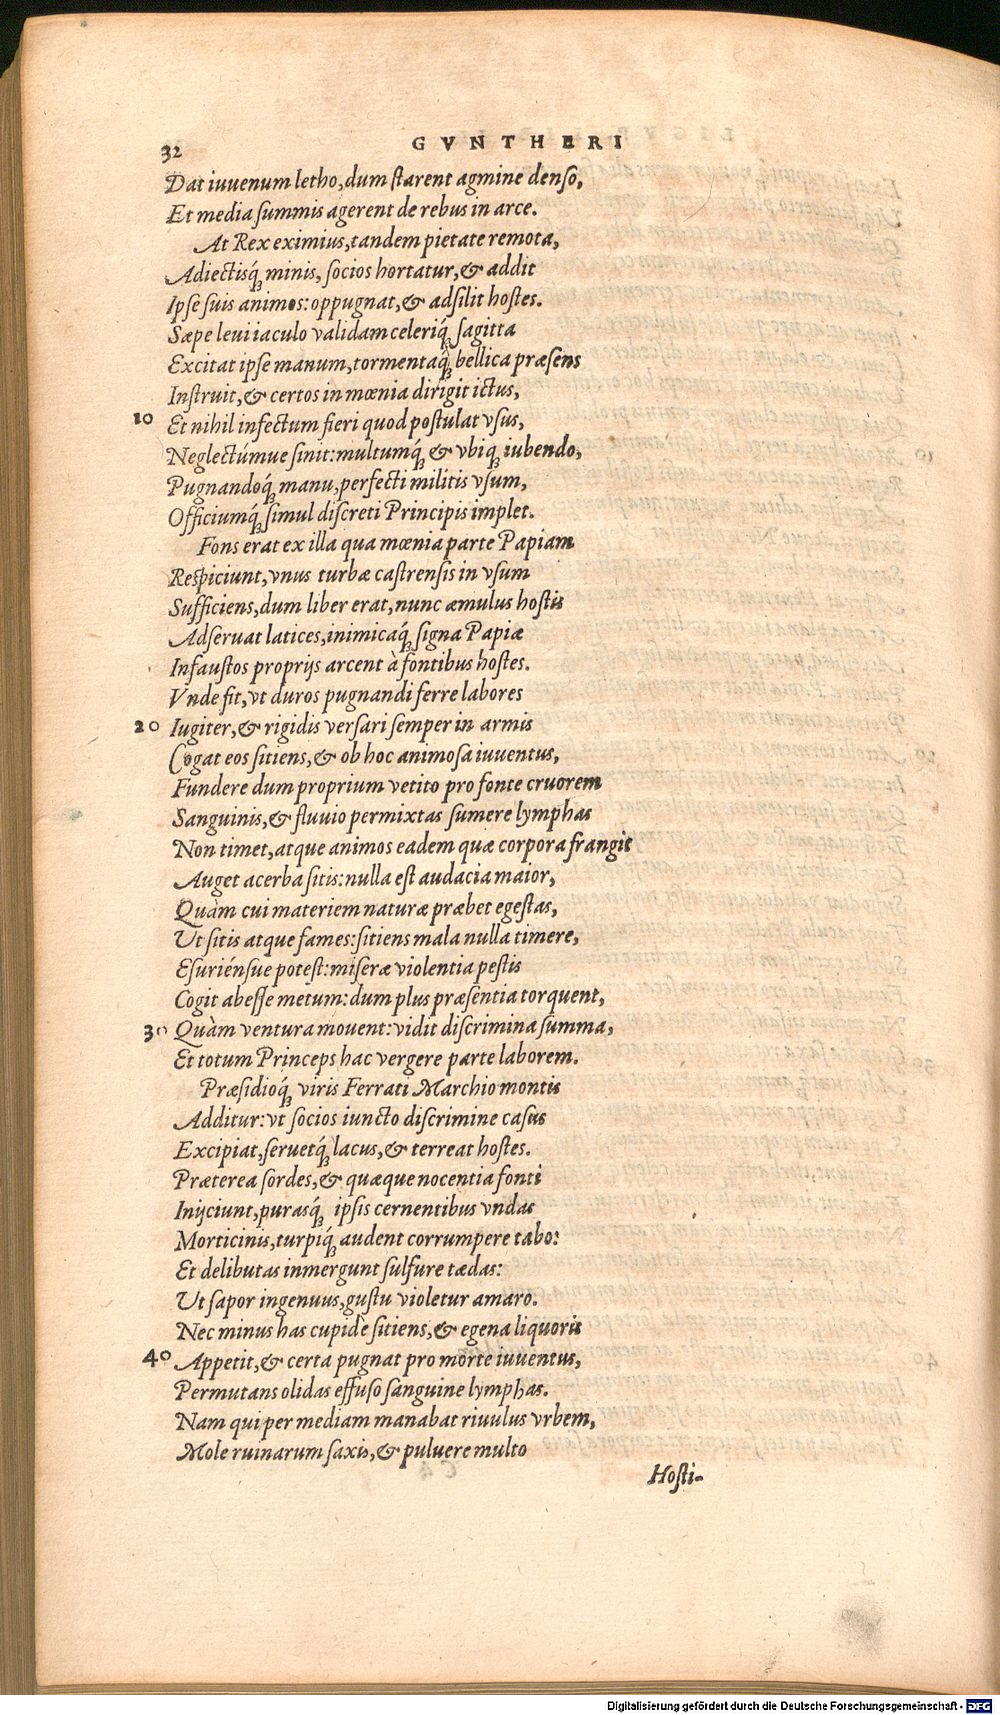 32 GVNTHERI
Dat iuvenum letho, dum starent agmine denso,
Et media summis agerent de rebus in arce.
At Rex eximius, tandem pietate remota,
Adiectisq́; minis, socios hortatur, & addit
Ipse suis animos: oppugnat, & adsilit hostes.
Sæpe levi iaculo validam celeriq́; sagitta
Excitat ipse manum, tormentaq́; bellica præsens
Instruit, & certos in mœnia dirigit ictus,
10 Et nihil infectum fieri quod postulat vsus,
Neglectúmue sinit: multumq́; & vbiq; iubendo,
Pugnandoq́; manu, perfecti militis vsum,
Officiumq́; simul discreti Principis implet.
Fons erat ex illa qua mœnia parte Papiam
Respiciunt, vnus turbæ castrensis in vsum
Sufficiens, dum liber erat, nunc æmulus hostis
Adseruat latices, inimicaq́; signa Papiæ
Infaustos proprijs arcent à fontibus hostes.
Vnde fit, vt duros pugnandi ferre labores
20 Iugiter, & rigidis versari semper in armis
Cogat eos sitiens, & ob hoc animosa iuuentus,
Fundere dum proprium vetito pro fonte cruorem
Sanguinis, & fluvio permixtas sumere lymphas
Non timet, atque animos eadem quæ corpora frangit
Auget acerba sitis: nulla est audacia maior,
Quàm cui materiem naturæ præbet egestas,
Ut sitis atque fames: sitiens mala nulla timere,
Esuriénsue potest: miseræ violentia pestis
Cogit abesse metum: dum plus præsentia torquent,
30 Quàm ventura mouent: vidit discrimina summa,
Et totum Princeps hac vergere parte laborem.
Præsidioq́; viris Ferrati Marchio montis
Additur: vt socios iuncto discrimine casus
Excipiat, seruetq́; lacus, & terreat hostes.
Præterea sordes, & quæque nocentia fonti
Inijciunt, purasq́; ipsis cernentibus vndas
Morticinis, turpiq́; audent corrumpere tabo:
Et delibutas inmergunt sulfure tædas:
Ut sapor ingenuus, gustu violetur amaro.
Nec minus has cupidè sitiens, & egena liquoris
40 Appetit, & certa pugnat pro morte iuuentus,
Permutans olidas effuso sanguine lymphas.
Nam qui per mediam manabat riuulus vrbem,
Mole ruinarum saxis, & puluere multo
Hosti-
Digitalisierung gefördert durch die Deutsche Forschungsgemeinschaft - DFG